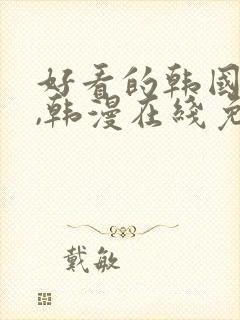 好看的韩国
,韩漫在线免
戴敏